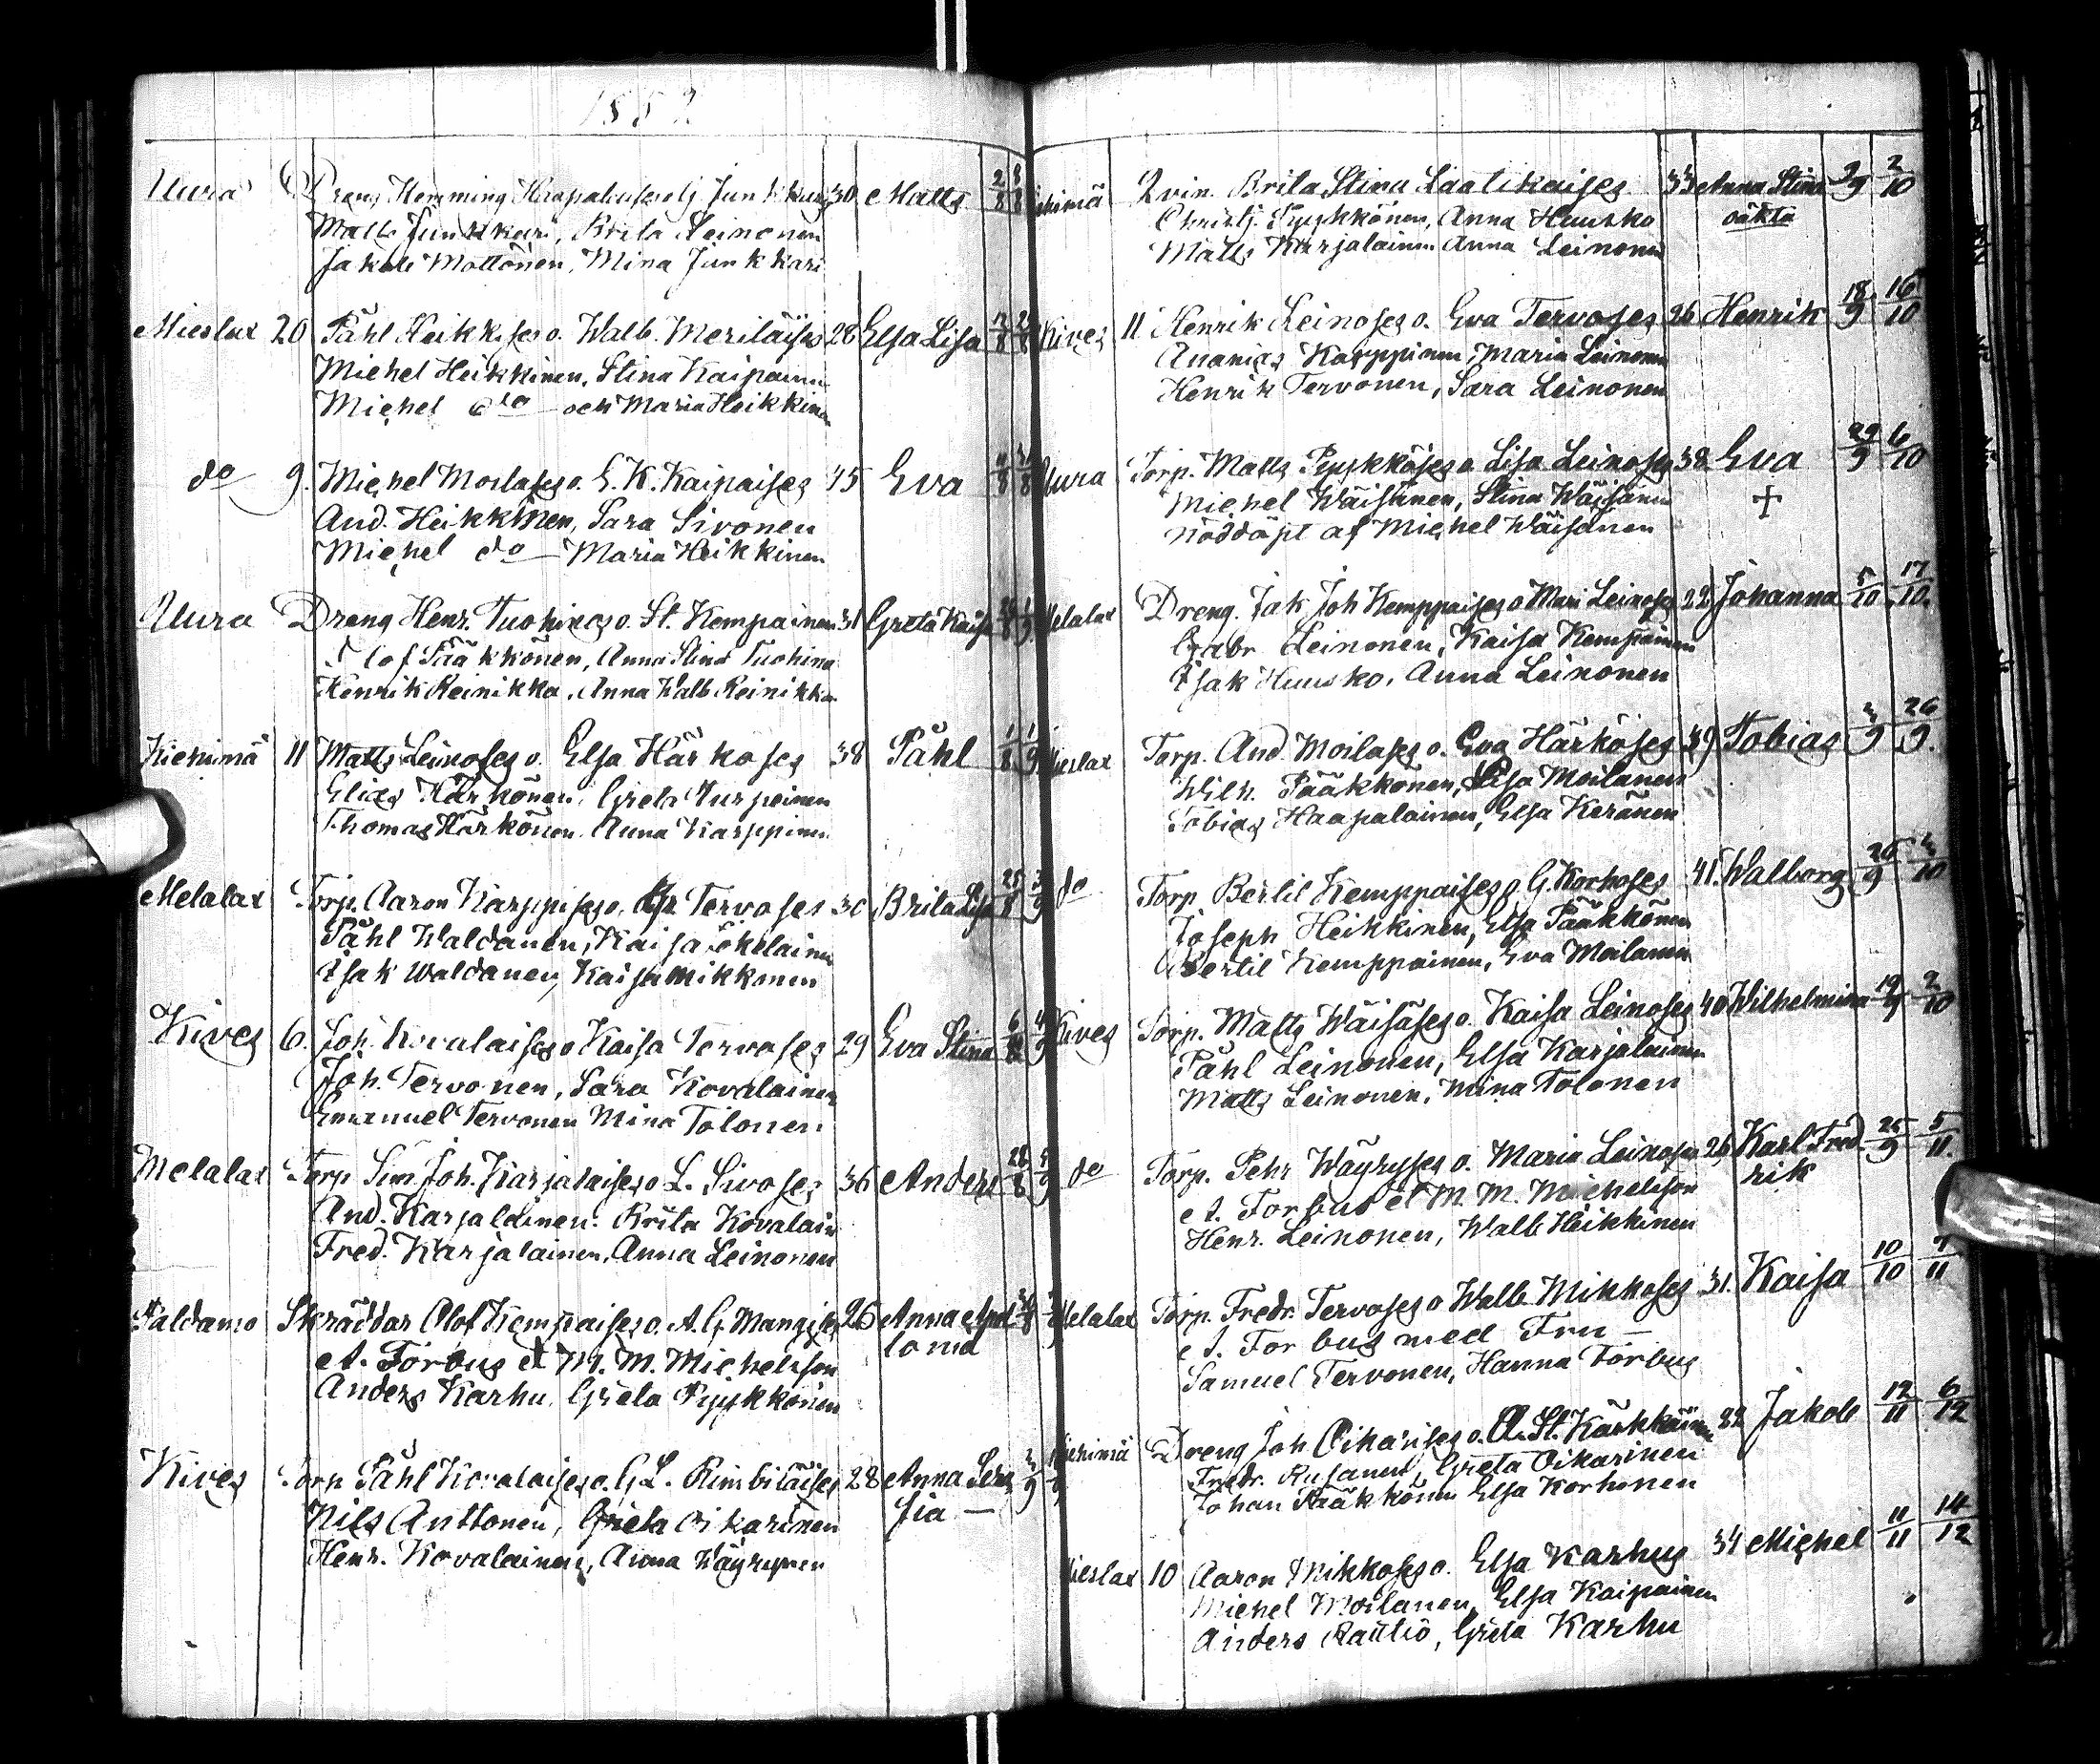 1852
Uura Dreng Hemming Haapalaises o. Elj Junkkari 30 Matts 2/8 8/8
Matts Junkkari, Brita Leinonen
Jakob Mattonen, Mina Junkkari
Mieslax 20 Påhl Heikkises o. Walb. Meriläises 28 Elsa Lisa
Michel Heikkinen, Stina Kaipainen
Michel do och Maria Heikkinen
do 9. Michel Moilases o. E. K. Kaipaises 45 Eva
And. Heikkinen, Sara Sivonen
Michel do Maria Heikkinen
Uura Dreng Henr. Tuohines o. St. Kempainen 31 Greta Kaisa
Olof Pääkkönen, Anna Stina Tuohino
Henrik Reinikka, Anna Walb Reinikka
Kiehimä 11 Matts Leinoses o. Elsa Härkoses 38 Påhl 1/8 1/9
Elias Härkönen, Greta Turpeinen
Thomas Härkönen Anna Karppinen
Melalax Torp. Aaron Karppises o. Tervoses 30 Brita Lisa 25/8
Påhl Waldanen, Kaisa Jokelainen
Isak Waldanen, Kaisa Mikkonen
Kives 6. Joh. Kovalaises o Kaisa Tervoses 29 Eva Stina
Joh. Tervonen, Sara Kovalainen
Emanuel Tervonen Mina Tolonen
Melalax Torp Sim. Joh. Karjalaises o L. Sivoses 36 Anders 28/8
And. Karjalainen. Brita Kovalain
Fred. Karjalainen, Anna Leinonen
Paldamo Skräddar Olof Kempaises o. A. G. Mangises 26 Anna Apol
lonia
A. Forbus et M. M. Michelsson
Anders Karhu, Greta Pyykkönen
Kives Torp Påhl Kovalaises o. G L. Rimbiläises 28 Anna Sera
fia —
Nils Anttonen, Greta Oikarinen
Henr. Kovalainen, Anna Wäyrynen
Qvin. Brita Stina Laatikaises 33 Anna Stina 3/9 2/10
Christ. Pyykkönen, Anna Huusko oäkta
Matts Karjalainen Anna Leinonen
Kives 11 Henrik Leinoses o. Eva Tervoses 26 Henrik 18/9 16/10
Ananias Karppinen, Maria Leinonen
Henrik Tervonen, Sara Leinonen
Uura Torp. Matts Pyykköses o Lisa Leinoses 38 Eva 29/9 6/10
Michel Wäisänen, Stina Wäisänen +
nöddöpt af Michel Wäisänen
Melalax Dreng. Jak Joh Kemppaises o Mari Leinoses 22 Johanna 5/10 17/10.
Gabr Leinonen, Kaisa Kempainen
Isak Huusko, Anna Leinonen
Mieslax Torp. And. Moilases o. Eva Härköses 39 Tobias 26/9.
Wilh. Pääkkönen, Lisa Moilanen
Tobias Haapalainen, Elsa Keränen
do Torp Bertil Kemppaises o G. Korhoses 41. Walborg 26/9
Joseph Heikkinen, Elsa Pääkkönen
Bertil Kemppainen, Eva Moilanen
Kives Torp. Matts Wäisäses o. Kaisa Leinoses 40 Wilhelmina 19/9 2/10
Påhl Leinonen, Elsa Karjalainen
Matts Leinonen, Mina Tolonen
do Torp. Pehr Wäyryses o. Maria Leinoses 26 Karl Fred 25/9 5/11.
rik
A. Forbus et M. M. Michelsson
Henr. Leinonen, Walb Heikkinen
Melalax Torp. Fredr. Tervoses o Walb Mikkoses 31. Kaisa 10/10 7/11
A. Forbus med Fru —
Samuel Tervonen, Hanna Forbus
Kiehimä Dreng Joh Oikarises o. A. St. Karkkäinen 22 Jakob 12/11 6/12
Fredr. Rusanen, Greta Oikarinen
Johan Pääkkönen Elsa Korhonen
Mieslax 10 Aaron Mikkoses o. Elsa Karhus 34 Michel 11/11 14/12
Michel Moilanen, Elsa Kaipainen
Anders Rautio, Greta Karhu